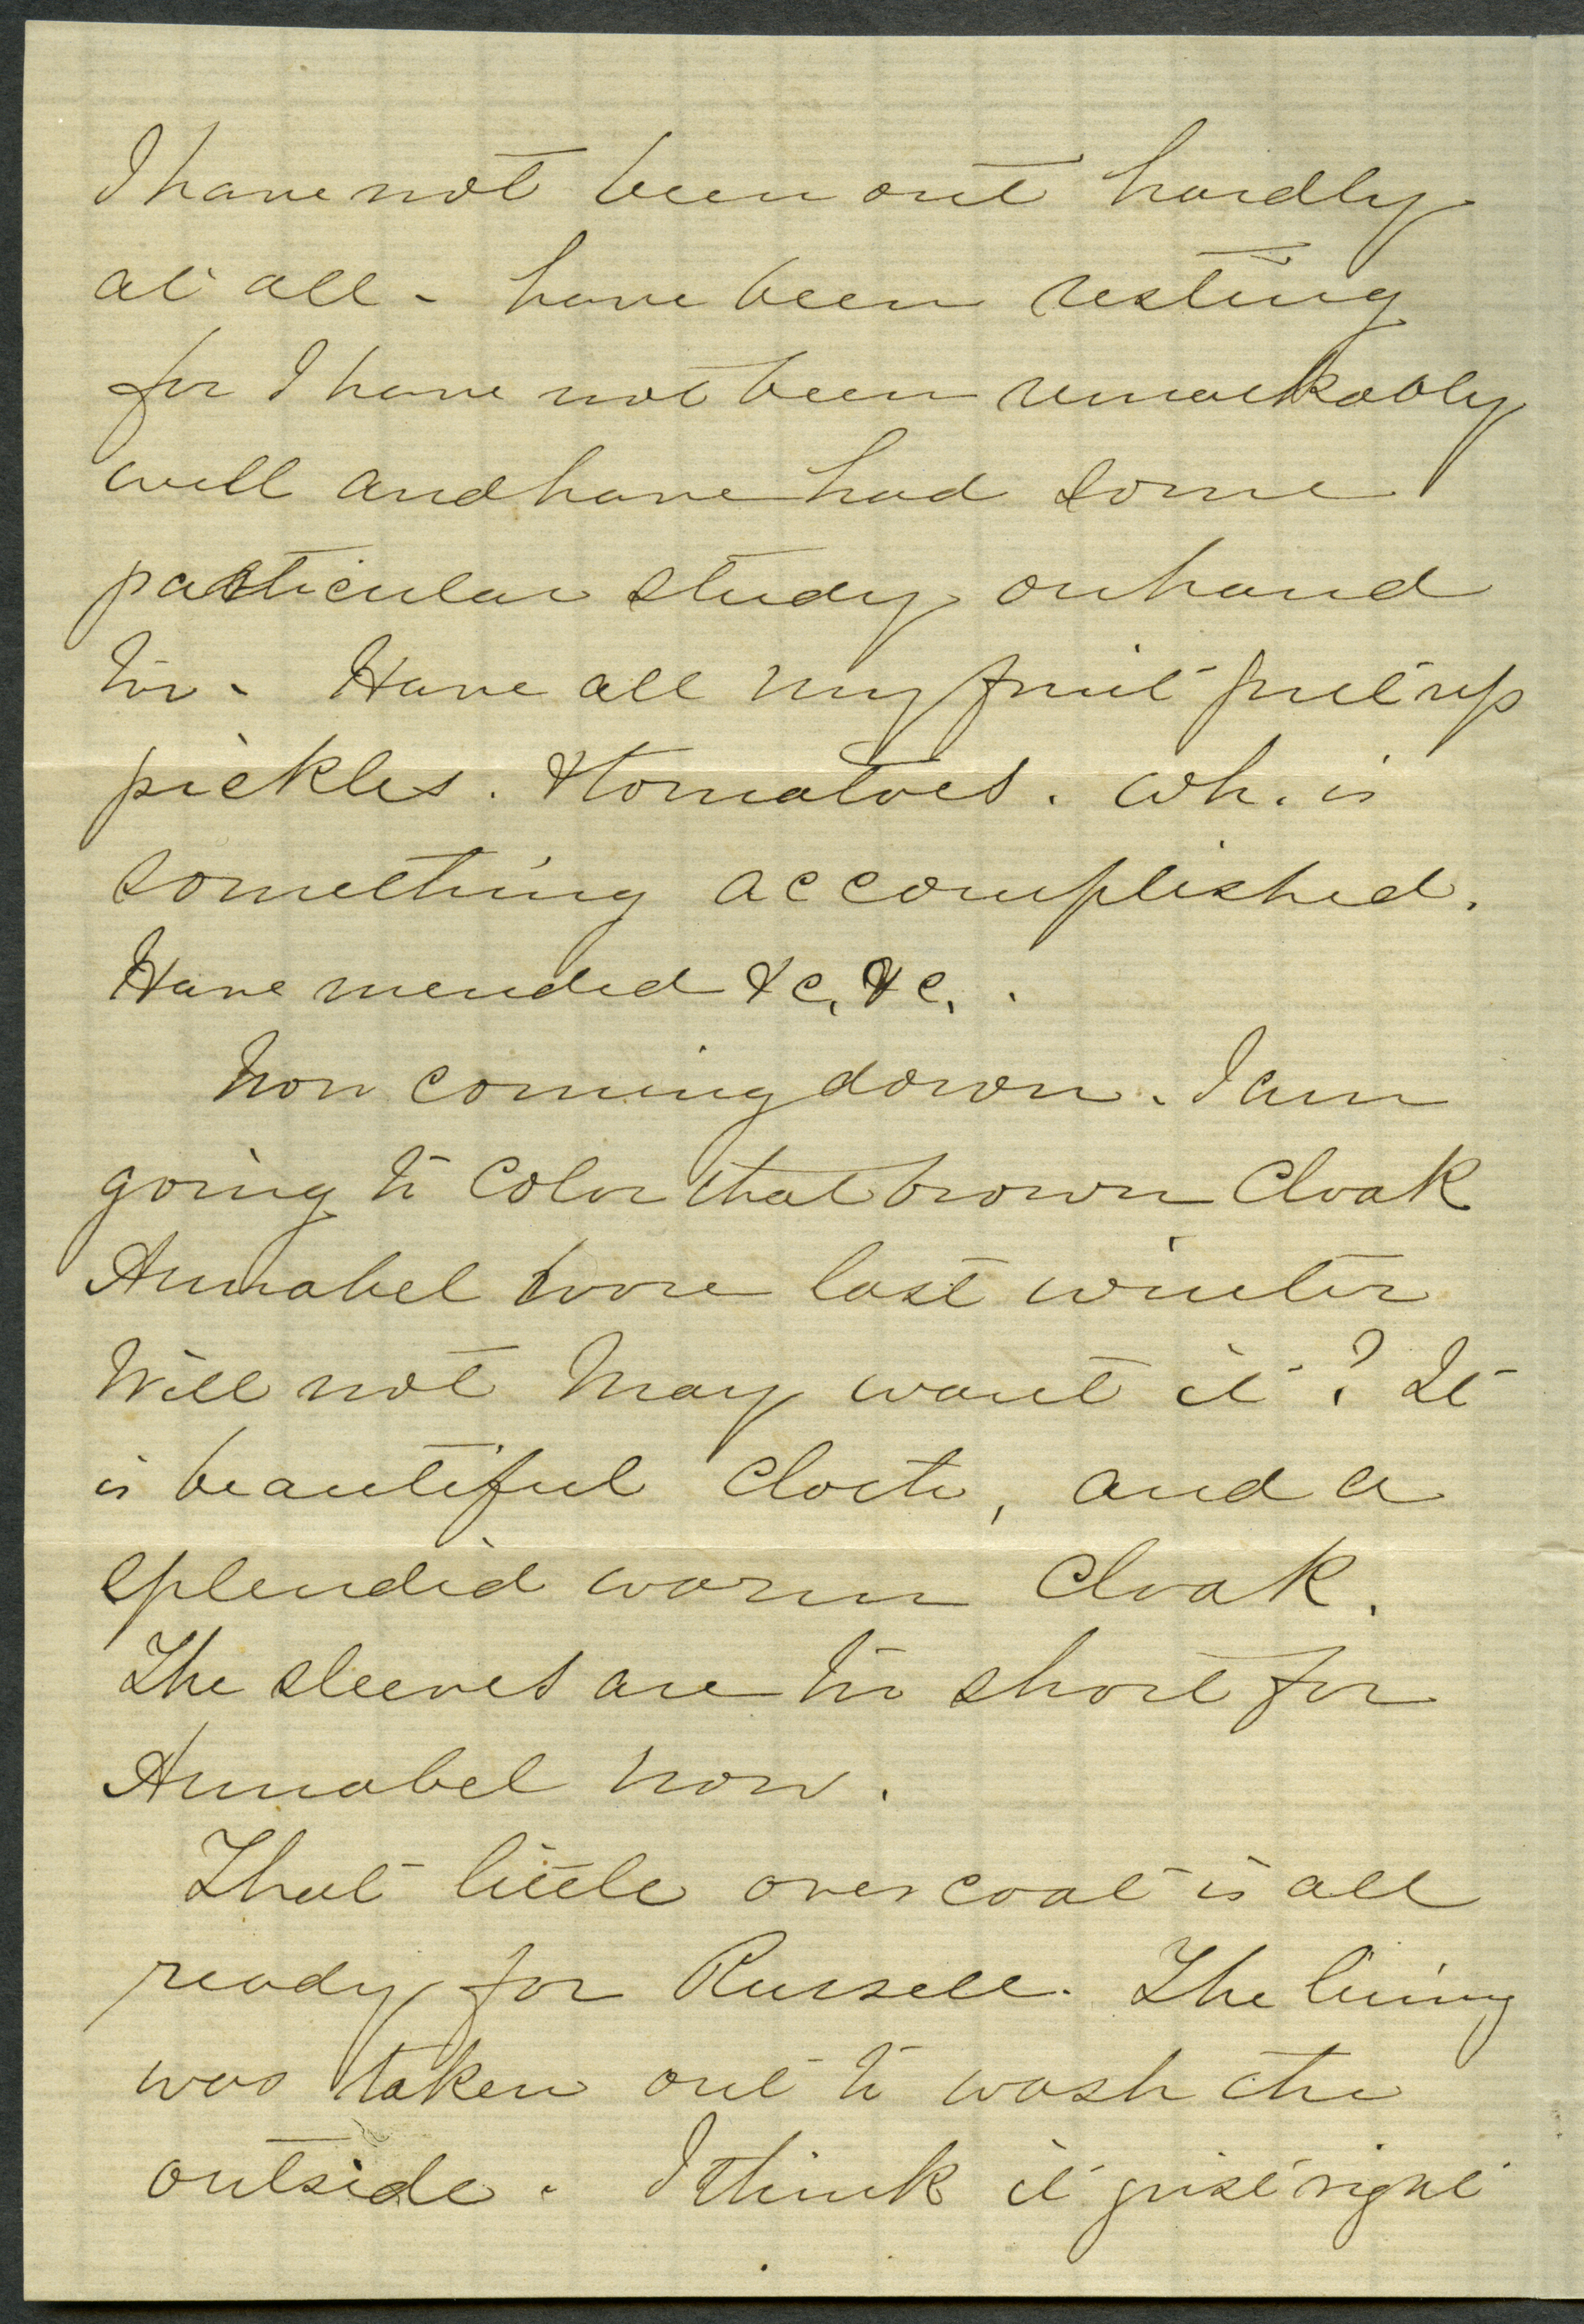 I have not been out hardly
at all - have been resting
for I have not been remarkably
well and have had some
particular study on hand
too. Have all my fruit put up
pickles. & tomatoes. wh. is
something accomplished.
Have mended &c, &c. .
Now coming down. I am
going to color that brown cloak
Annabel wore last winter
Will not May want it? It
is beautiful cloth, and a
splendid warm cloak.
The sleeves are too short for
Annabel now.
That little overcoat is all
ready for Russell. The lining
was taken out to wash the
outside. I think it just right